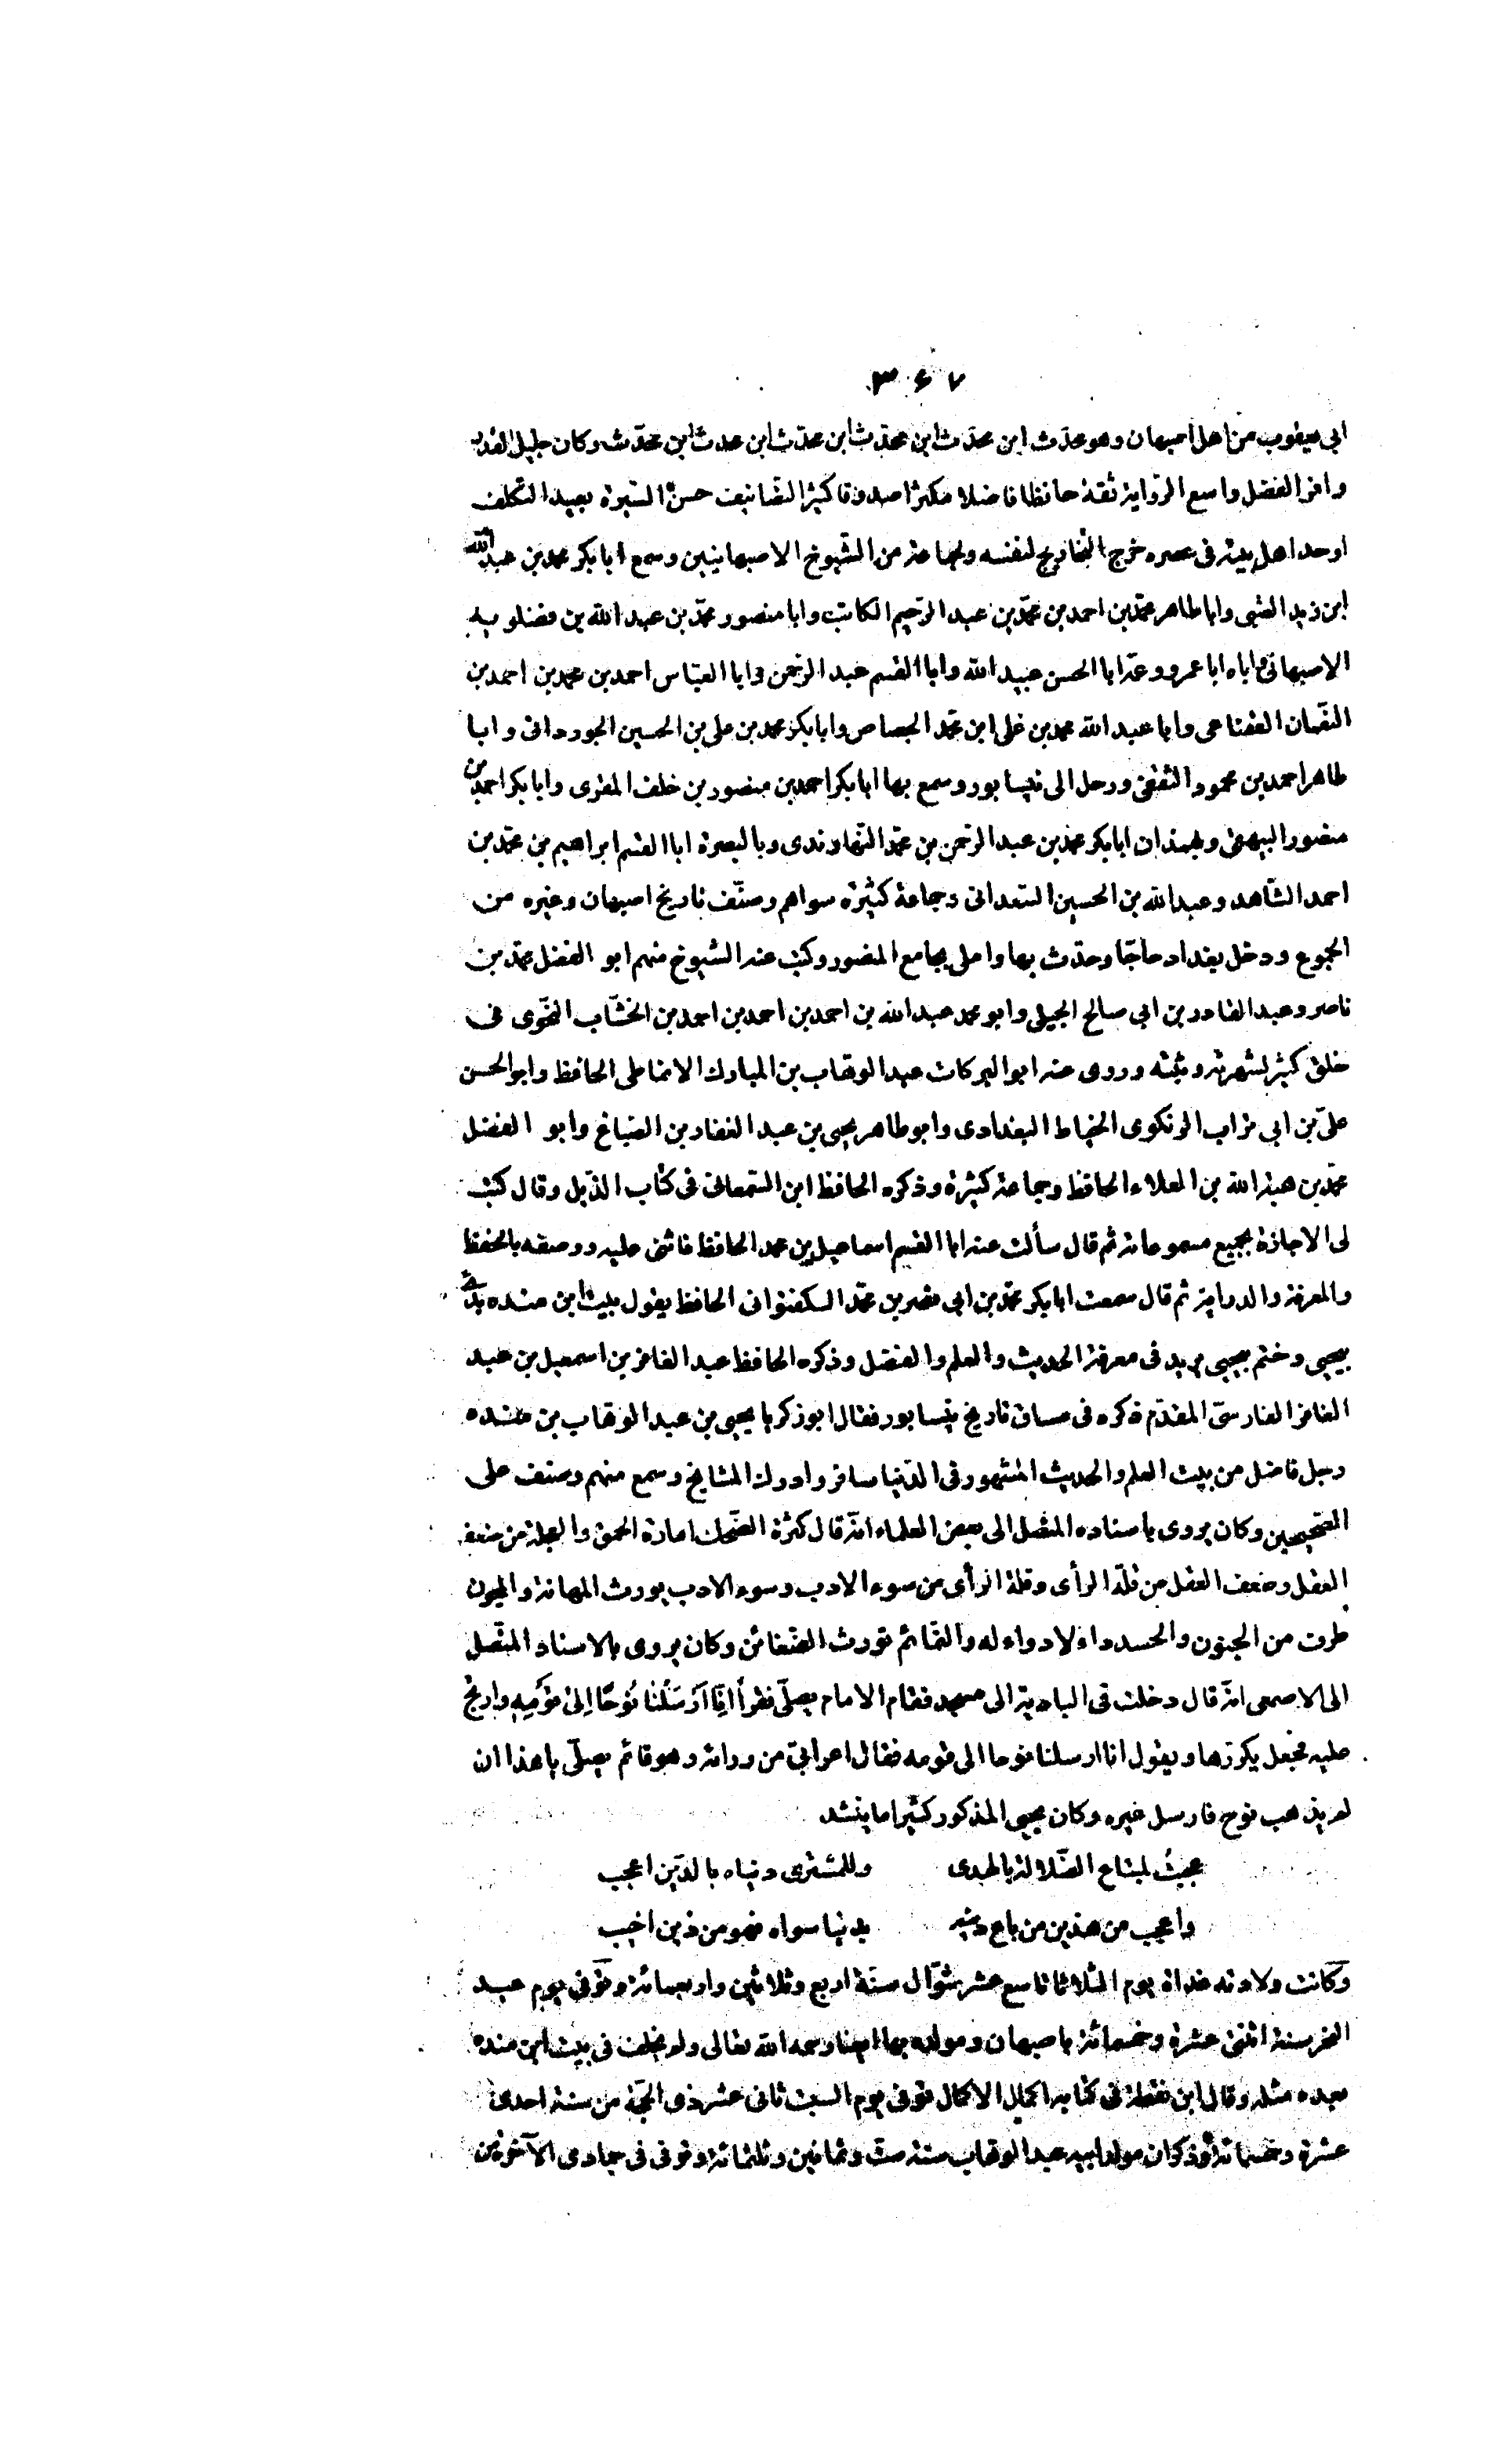 ٣٦٧
ابى يعقوب من اهل اصبهان وهو محدّث ابن محدّث ابن محدّث ابن محدّث ابن محدث ابن محدّث وكان جليل القدر
وافر الفضل واسع الرّواية ثقة حافظا فاضلا مكثرا صدوقا كثير التّصانيف حسن السّيرة بعيد التكلف
اوحد اهل بيته فى عصره خرج التخاريج لنفسه ولجماعة من الشّيوخ الاصبهانيين وسمع ابا بكر محمد بن عبد الله
ابن زيد الضبى وابا طاهر محمّد بن احمد بن محمّد بن عبد الرّحيم الكاتب وابا منصور محمّد بن عبد الله بن فضلويه
الاصبهانى واباه ابا عمرو وعمّه ابا الحسن عبيد الله وابا القسم عبد الرحمن وابا العبّاس احمد بن محمد بن احمد بن
النعمان القضاعى وابا عبد الله محمد بن على ابن محمّد الجصاص وابا بكر محمد بن على بن الحسين الجوردانى وابا
طاهر احمد بن محمود الثقفى ورحل الى نيسابور وسمع بها ابا بكر احمد بن منصور بن خلف المقرى وابا بكر احمد بن
منصور البيهقى وبهمذان ابا بكر محمد بن عبد الرحمن بن محمّد النّهاوندى وبالبصرة ابا القسم ابراهيم بن محمّد بن
احمد الشّاهد وعبد الله بن الحسين السّعدانى وجماعة كثيرة سواهم وصنّف تاريخ اصبهان وغيره من
الجموع ودخل بغداد حاجّا وحدّث بها واملى بجامع المنصور وكتب عنه الشيوخ منهم ابو الفضل محمّد بن
ناصر وعبد القادر بن ابى صالح الجيلى وابو محمد عبد الله بن احمد بن احمد بن احمد بن الخشّاب النّحوى فى
خلق كثير لشهرته وثقته وروى عنه ابو البركات عبد الوهّاب بن المبارك الانماطى الحافظ وابو الحسن
علىّ بن ابى تراب الزنكوى الخياط البغدادى وابو طاهر يحيى بن عبد الغفار بن الصّباغ وابو الفضل
محمّد بن هبة الله بن العلاء الحافظ وجماعة كثيرة وذكره الحافظ ابن السّمعانى فى كتاب الذّيل وقال كتب
لى الاجازة بجميع مسموعاته ثم قال سألت عنه ابا القسم اسماعيل بن محمد الحافظ فاثنى عليه ووصفه بالحفظ
والمعرفة والدراية ثم قال سمعت ابا بكر محمّد بن ابى نصر بن محمّد السكفتوانى الحافظ يقول بيت ابن منده بدئ
بيحيى وختم بيحيى يريد فى معرفة الحديث والعلم والفضل وذكره الحافظ عبد الغافر بن اسمعيل بن عبد
الغافر الفارسىّ المقدّم ذكره فى مساق تاريخ نيسابور فقال ابو زكريا يحيى بن عبد الوهّاب بن منده
رجل فاضل من بيت العلم والحديث المشهور فى الدّنيا سافر وادرك المشايخ وسمع منهم وصنف على
الصّحيحين وكان يروى باسناده المتّصل الى بعض العلماء انّه قال كثرة الضّحك امارة الحمق والعجلة من ضعف
العقل وضعف العقل من قلّة الرأى وقلة الرأى من سوء الادب وسوء الادب يورث المهانة والمجون
طرف من الجنون والحسد داء لا دواء له والنمائم تورث الضّغائن وكان يروى بالاسناد المتّصل
الى الاصمعى انّه قال دخلت فى البادية الى مسجد فقام الامام يصلّى فقرأ اِنّا اَرْسَلْنا نُوحًا اِلى قَوْمِهِ وارتج
عليه فجعل يكرّرها ويقول انا ارسلنا نوحا الى قومه فقال اعرابىّ من ورائه وهو قائم يصلّى يا هذا ان
لم يذهب نوح فارسل غيره وكان يحيى المذكور كثيرا ما ينشد
عجبتُ لمبتاع الضّلالة بالهدى وللمشترى دنياه بالدّين اعجب
واعجب من هذين من باع دينه بدنيا سواه فهو من ذين اخيب
وكانت ولادته غداة يوم الثلاثا تاسع عشر شوّال سنة اربع وثلاثين واربعمائة وتوفى يوم عيد
النحر سنة اثنتى عشرة وخمسمائة باصبهان ومولده بها ايضا رحمه الله تعالى ولم يخلف فى بيت ابن منده
بعده مثله وقال ابن نقطة فى كتابه اكمال الاكمال توفى يوم السبت ثانى عشر ذى الحجّة من سنة احدى
عشرة وخمسمائة وذكر ان مولد ابيه عبد الوهاب سنة ست وثمانين وثلثمائة وتوفى فى جمادى الآخرة من